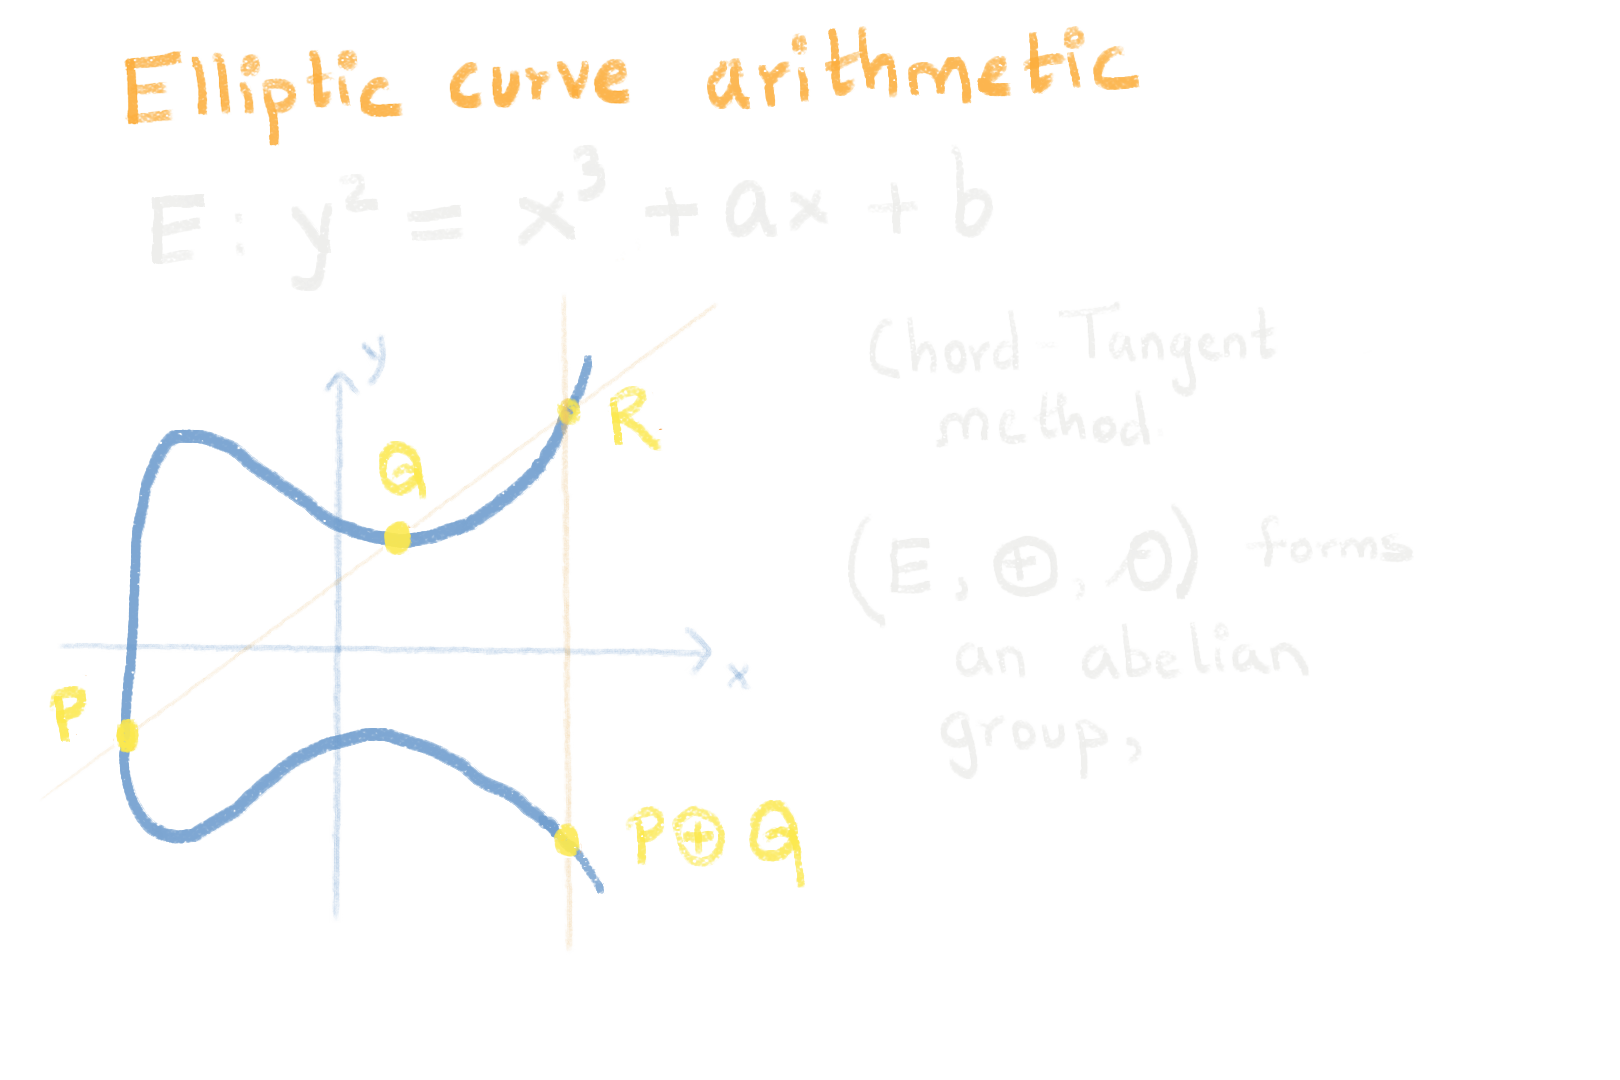 Elliptic curve arithmetic
E: y² = x³ + ax + b
Chord-Tangent
method
y
R
Q
(E, ⊕, O) forms
an abelian
x
P
group,
P⊕Q